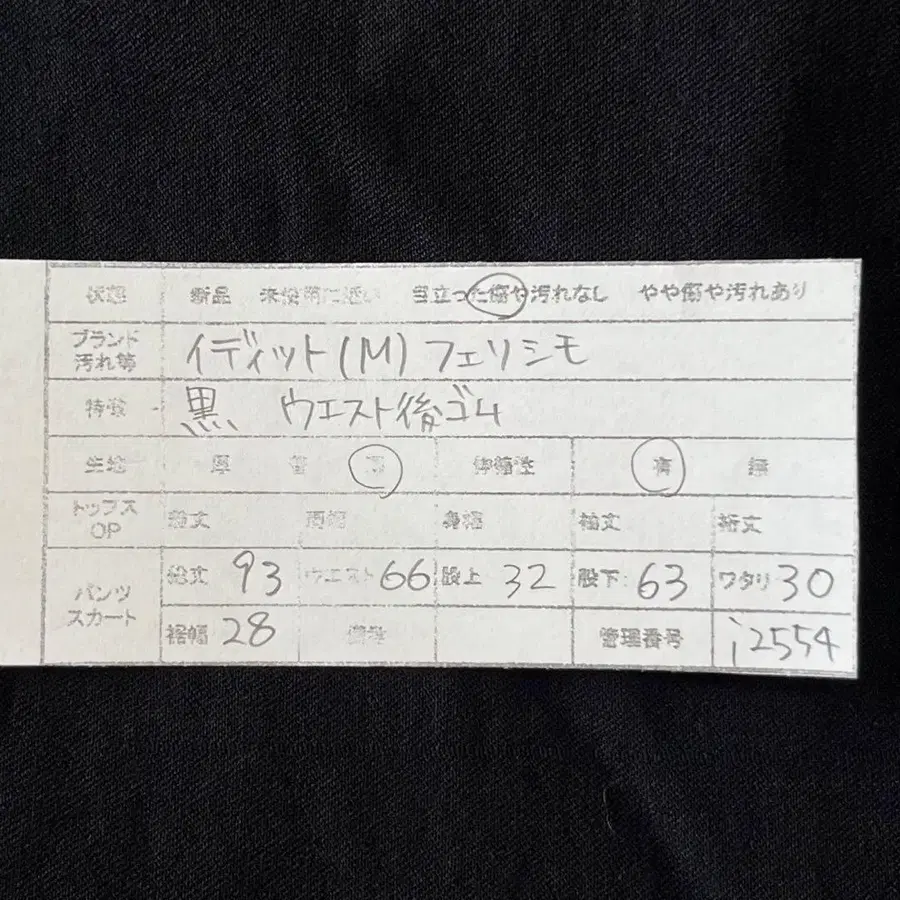 状態 新品 未使用に近い 目立った傷や汚れなし やや傷や汚れあり
ブランド
汚れ等 イディット(M)フェリシモ
特徴 黒 ウエスト後ゴム
生地 厚 普 伸縮性 有 無
トップス
OP 総丈 肩幅 身幅 袖丈 裄丈
パンツ
スカート 総丈 93 ウエスト 66 股上 32 股下: 63 ワタリ 30
裾幅 28 備考 管理番号 i2554